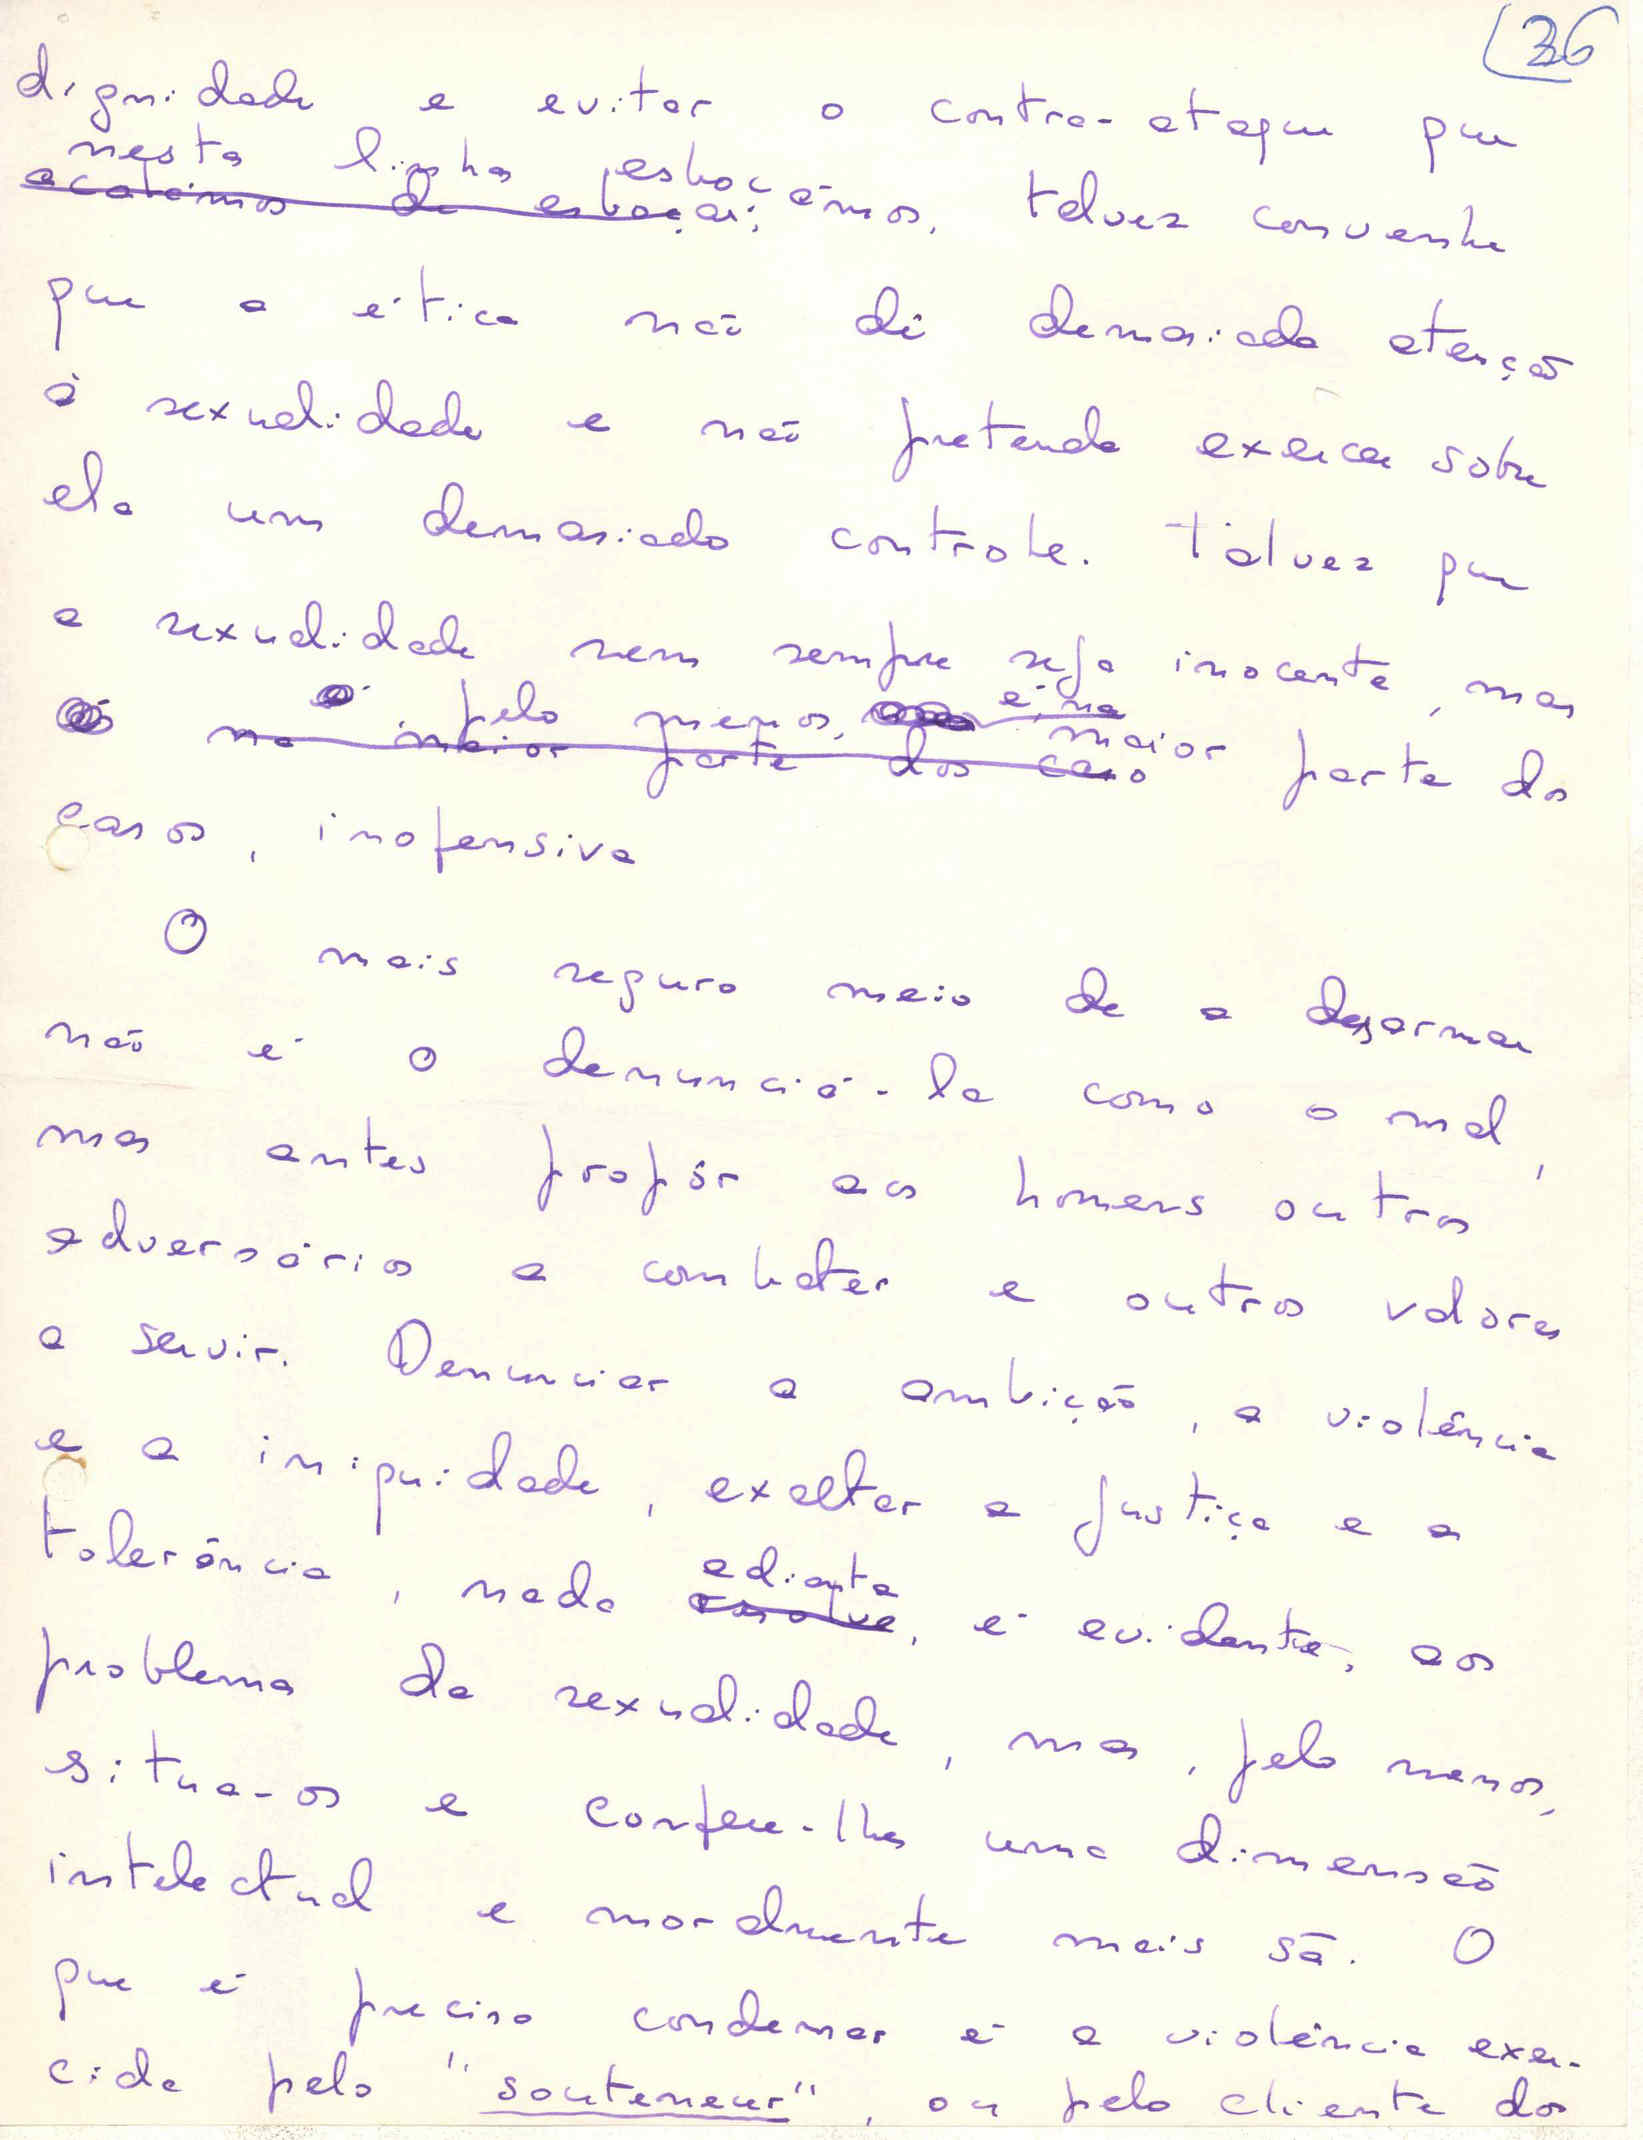 36
dignidade e evitar o contra-ataque que
nesta linha esboçámos, talvez convenha
acabámos de esboçar;
que a ética não dê demasiada atenção
à sexualidade e não pretenda exercer sobre
ela um demasiado controle. Talvez que
a sexualidade nem sempre seja inocente, mas
é, pelo menos, é, na maior parte dos
na maior parte dos caso
casos, inofensiva
O mais seguro meio de a desarmar
não é o denunciá-la como o mal,
mas antes propôr aos homens outros
adversários a combater e outros valores
a servir. Denunciar a ambição, a violência
e a iniquidade, exaltar a justiça e a
tolerância, nada adianta, é evidente, aos
resolve
problemas da sexualidade, mas, pelo menos,
situa-os e confere-lhes uma dimensão
intelectual e moralmente mais sã. O
que é preciso condenar é a violência exer-
cida pelo "souteneur", ou pelo cliente dos